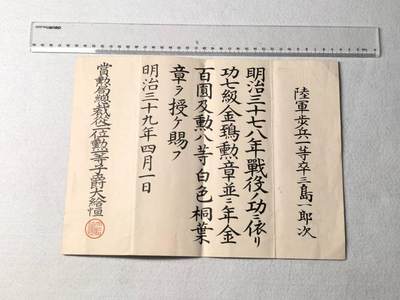 陸軍歩兵一等卒三島一郎次
明治三十七八年戰役ノ功ニ依リ
功七級金鵄勲章並ニ年金
百圓及勲八等白色桐葉
章ヲ授ケ賜フ
明治三十九年四月一日
賞勲局總裁從二位勲一等子爵大給恒